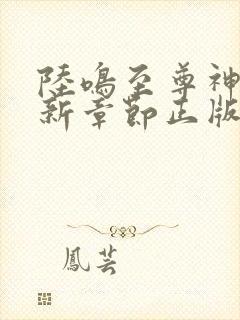 陸鳴至尊神
新章節正版
鳳芸